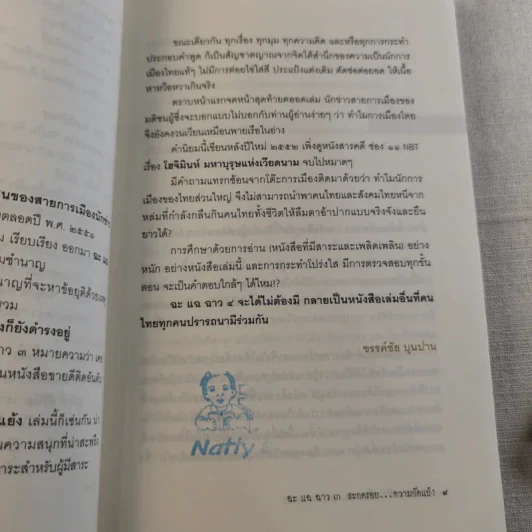 นของสายการเมืองนักข่า
ตลอดปี พ.ศ. ๒๕๕๑
ม เรียบเรียง ออกมา ฉะ แฉ
มชำนาญ
นาญที่จะหาข้อยุติด้วยเหตุ
รวม
งก็ยังดำรงอยู่
าว ๓ หมายความว่า เคย
ป็นหนังสือขายดีติดอันดับ
แย้ง เล่มนี้ก็เช่นกัน นำ
นความสนุกที่น่าสะพรึง
าระสำหรับผู้มีสาระ
ขณะเดียวกัน ทุกเรื่อง ทุกมุม ทุกความคิด และหรือทุกการกระทำ
ประกอบคำพูด ก็เป็นสัญชาตญาณจากจิตใต้สำนึกของความเป็นนักการ
เมืองไทยแท้ๆ ไม่มีการต่อยไข่ใส่สี ประแป้งแต่งเติม ตัดข้อต่อยอด ให้เนื้อ
หาหรือหวาเกินจริง
ตราบหน้าแรกจดหน้าสุดท้ายตลอดเล่ม นักข่าวสายการเมืองของ
มติชนผู้ซึ่งจะบอกแบบไม่บอกกับท่านผู้อ่านง่ายๆ ว่า ทำไมการเมืองไทย
จึงยังคงวนเวียนเหมือนพายเรือในอ่าง
คำนิยมนี้เขียนหลังปีใหม่ ๒๕๕๒ เพิ่งดูหนังสารคดี ช่อง ๑๑ NBT
เรื่อง โฮจิมินห์ มหาบุรุษแห่งเวียดนาม จบไปหมาดๆ
มีคำถามแทรกซ้อนจากโต๊ะการเมืองติดมาด้วยว่า ทำไมนักการ
เมืองของไทยส่วนใหญ่ จึงไม่สามารถนำพาคนไทยและสังคมไทยหนีจาก
หล่มที่กำลังกลืนกินคนไทยทั้งชีวิตให้ลืมตาอ้าปากแบบจริงจังและยืน
ยาวได้?
การศึกษาด้วยการอ่าน (หนังสือที่มีสาระและเพลิดเพลิน) อย่าง
หนัก อย่างหนังสือเล่มนี้ และการกระทำโปร่งใส มีการตรวจสอบทุกขั้น
ตอน จะเป็นคำตอบใกล้ๆ ได้ไหม!?
ฉะ แฉ ฉาว ๔ จะได้ไม่ต้องมี กลายเป็นหนังสือเล่มอื่นที่คน
ไทยทุกคนปรารถนามีร่วมกัน
ขรรค์ชัย บุนปาน
Natty
ฉะ แฉ ฉาว ๓ สะกดรอย...ความขัดแย้ง ๙